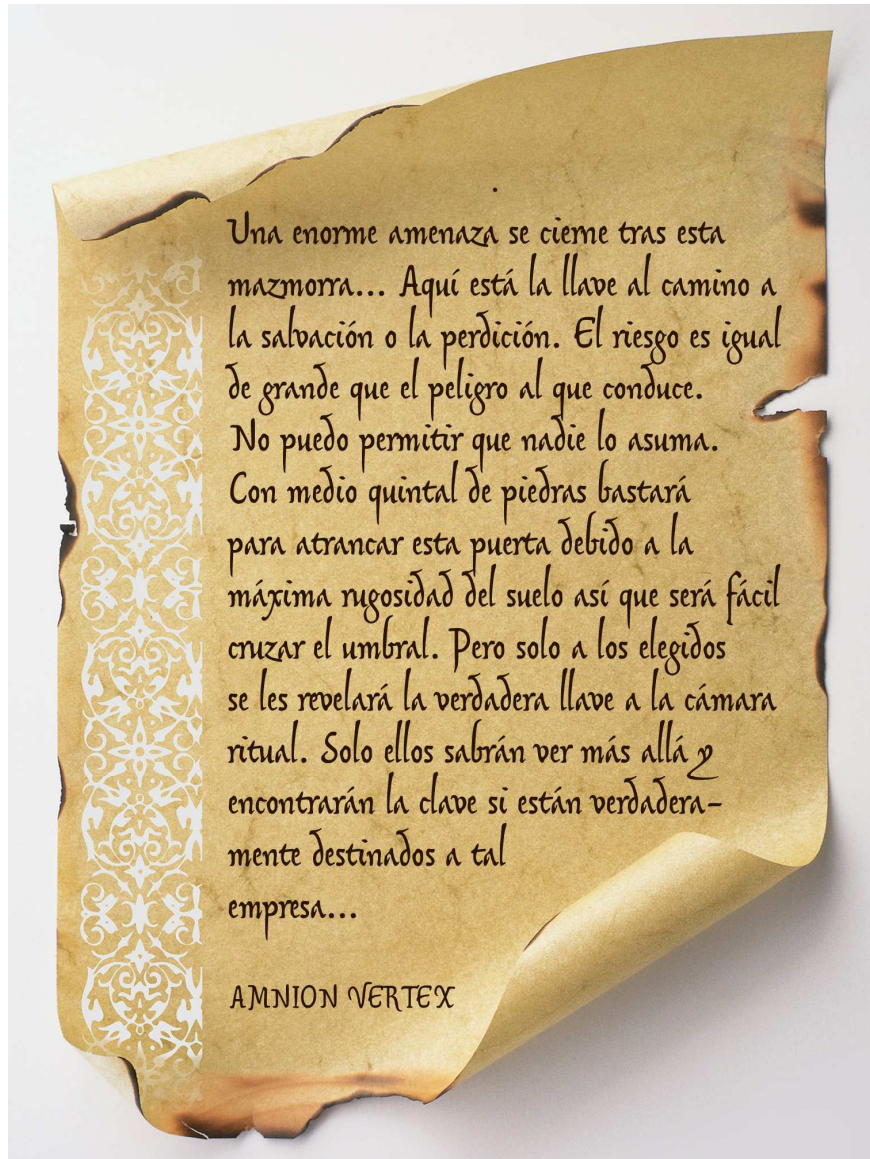 Una enorme amenaza se cierne tras esta
mazmorra... Aquí está la llave al camino a
la salvación o la perdición. El riesgo es igual
de grande que el peligro al que conduce.
No puedo permitir que nadie lo asuma.
Con medio quintal de piedras bastará
para atrancar esta puerta debido a la
máxima rugosidad del suelo así que será fácil
cruzar el umbral. Pero solo a los elegidos
se les revelará la verdadera llave a la cámara
ritual. Solo ellos sabrán ver más allá y
encontrarán la clave si están verdadera-
mente destinados a tal
empresa...
AMNION VERTEX